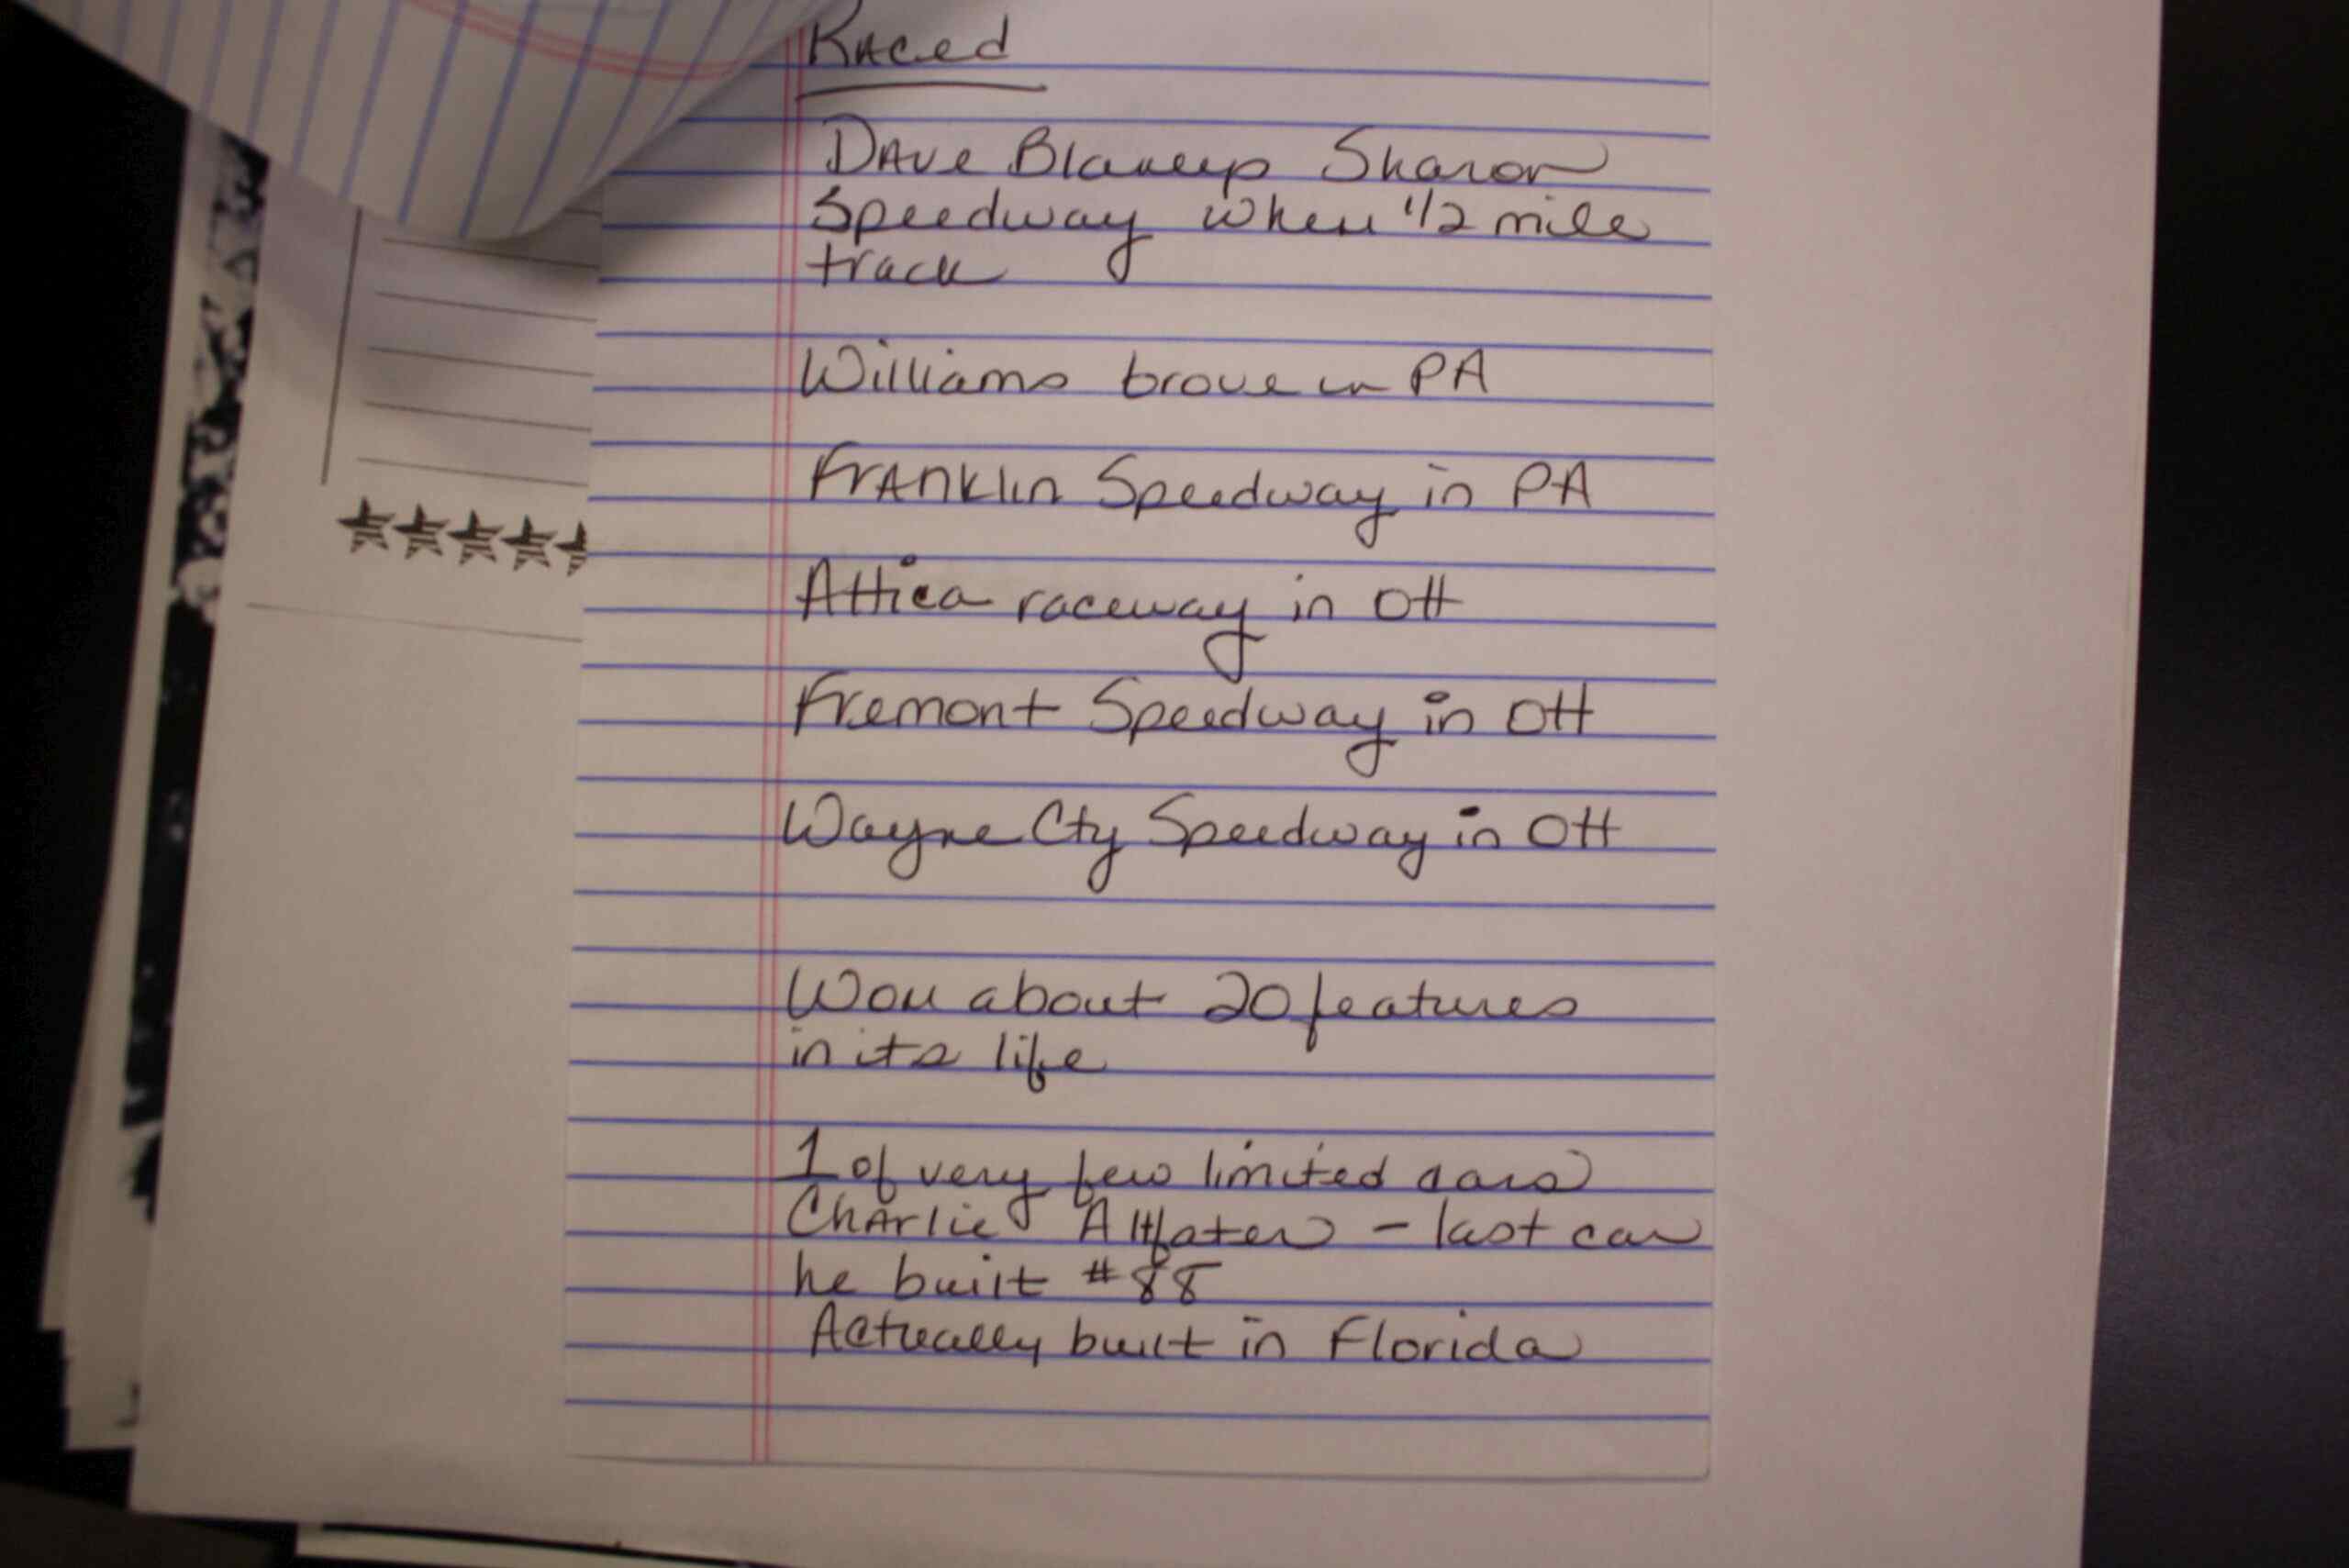 Raced
Dave Blaneys Sharon
Speedway when 1/2 mile
track
Williams brove in PA
Franklin Speedway in PA
Attica raceway in OH
Fremont Speedway in OH
Wayne Cty Speedway in OH
Won about 20 features
in its life
1 of very few limited cars
Charlie Altfater - last car
he built #88
Actually built in Florida